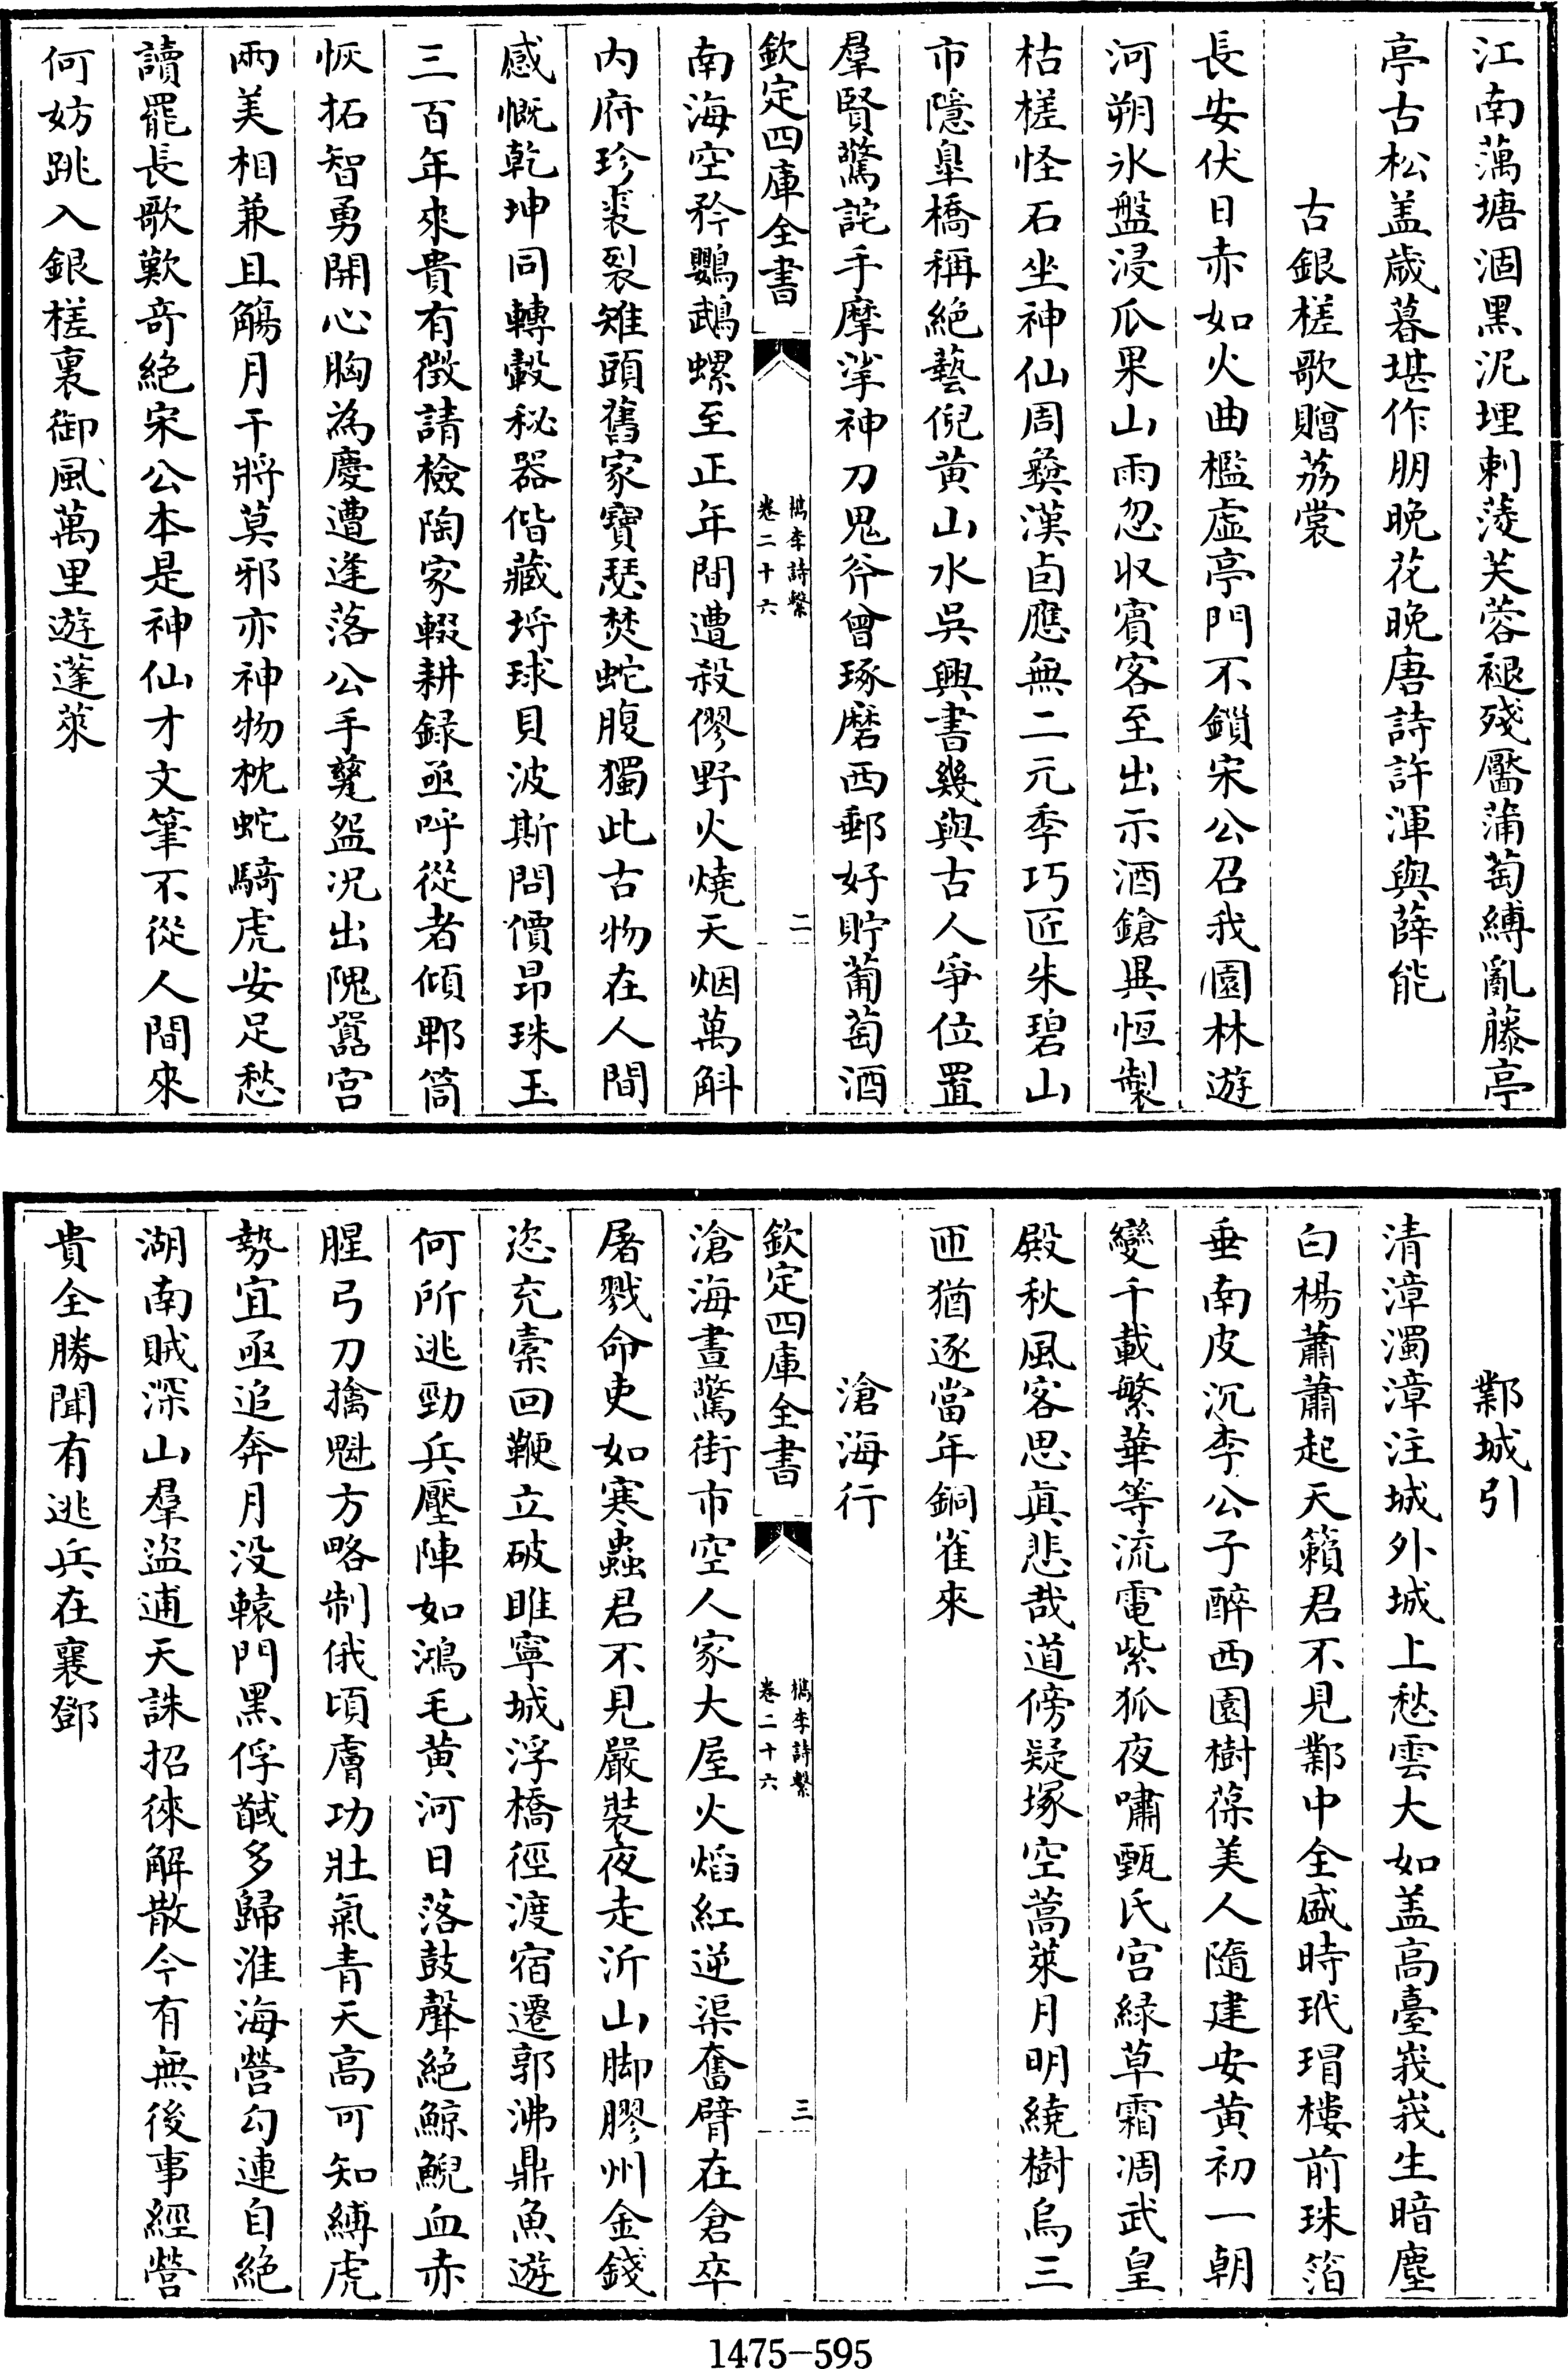 江南蕅塘涸黑泥埋刺菱芙蓉褪殘靨蒲萄縛亂藤亭
亭古松盖歲暮堪作朋晚花晚唐詩許渾與薛能
古銀槎歌贈荔裳
長安伏日赤如火曲檻虛亭門不鎖宋公召我園林遊
河朔氷盤浸瓜果山雨忽收賓客至出示酒鎗異恒製
枯槎怪石坐神仙周彝漢卣應無二元季巧匠朱碧山
市隱臯橋稱絶藝倪黄山水吳興書幾與古人爭位置
羣賢驚詫手摩挲神刀鬼斧曾琢磨西郵好貯葡萄酒
欽定四庫全書
檇李詩繫
卷二十六
二
南海空矜鸚鵡螺至正年間遭殺僇野火燒天烟萬斛
内府珍裘裂雉頭舊家寶瑟焚蛇腹獨此古物在人間
感慨乾坤同轉轂秘器偕藏埒球貝波斯問價昂珠玉
三百年來貴有徴請檢陶家輟耕録亟呼從者傾郫筒
恢拓智勇開心胸為慶遭逢落公手甕盌况出隗囂宫
兩美相兼且觴月干將莫邪亦神物枕蛇騎虎安足愁
讀罷長歌歎奇絶宋公本是神仙才文筆不從人間來
何妨跳入銀槎裏御風萬里遊蓬萊
鄴城引
清漳濁漳注城外城上愁雲大如盖高臺峩峩生暗塵
白楊蕭蕭起天籟君不見鄴中全盛時玳瑁樓前珠箔
垂南皮沉李公子醉西園樹葆美人隨建安黄初一朝
變千載繁華等流電紫狐夜嘯甄氏宫緑草霜凋武皇
殿秋風客思真悲哉道傍疑塚空蒿萊月明繞樹烏三
匝猶逐當年銅雀來
滄海行
欽定四庫全書
檇李詩繫
卷二十六
三
滄海晝驚街市空人家大屋火熖紅逆渠奮臂在倉卒
屠戮命吏如寒蟲君不見嚴裝夜走沂山脚膠州金錢
恣充橐回鞭立破睢寧城浮橋徑渡宿遷郭沸鼎魚遊
何所逃勁兵壓陣如鴻毛黄河日落鼓聲絶鯨鯢血赤
腥弓刀擒魁方略制俄頃膚功壯氣青天高可知縛虎
勢宜亟追奔月没轅門黒俘馘多歸淮海營勾連自絶
湖南賊深山羣盜逋天誅招徠解散今有無後事經營
貴全勝聞有逃兵在襄鄧
1475-595